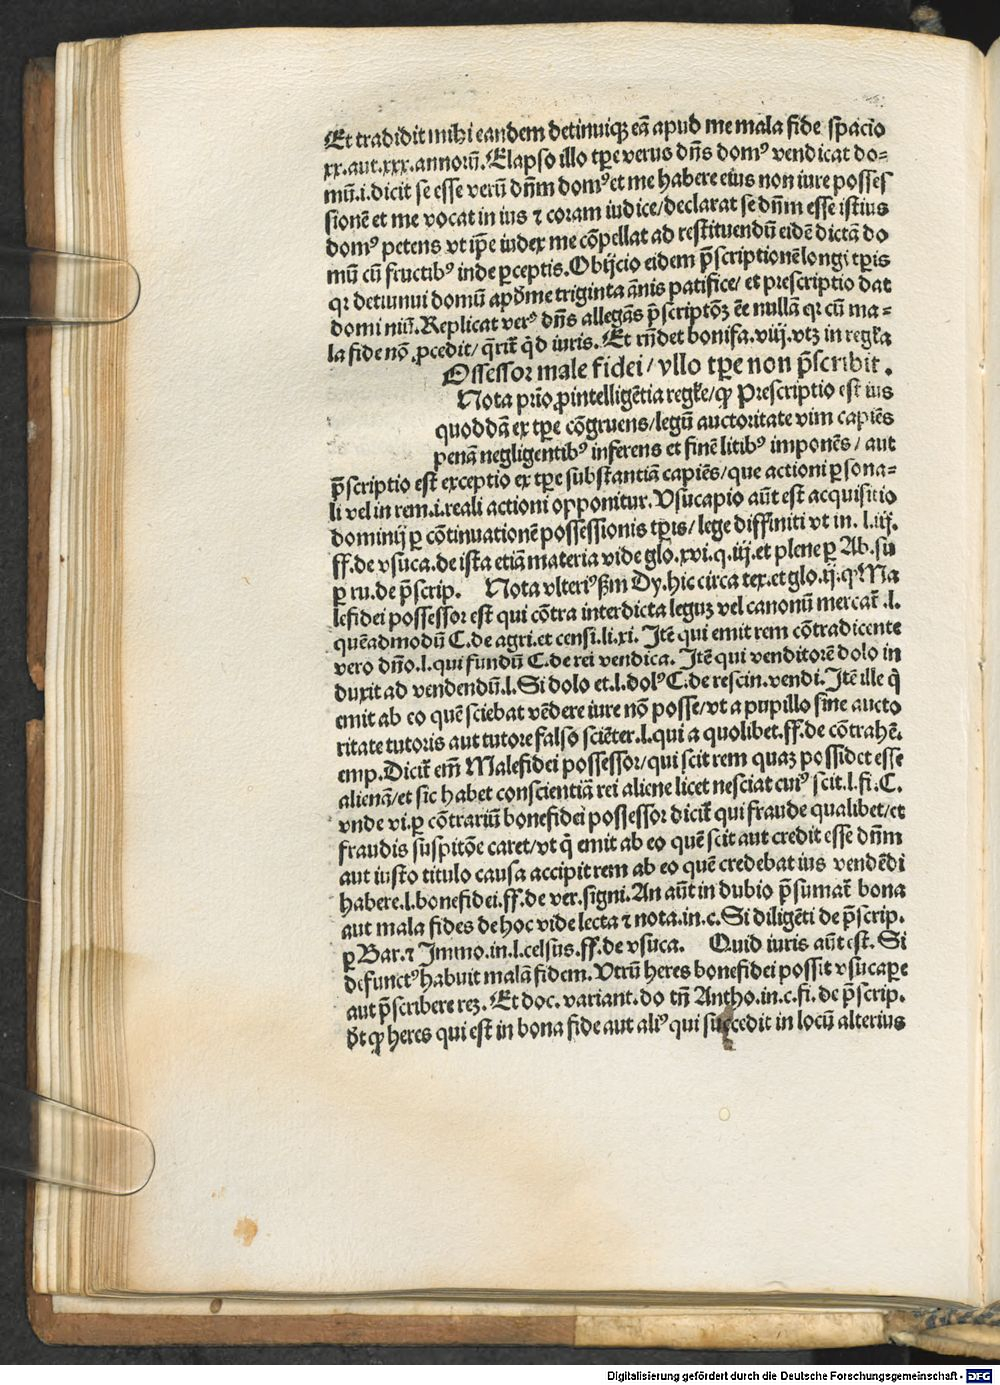 Et tradidit mihi eandem detinuiqꝫ eā apud me mala fide spacio
xx.aut.xxx.annorū.Elapso illo tꝑe verus dn̄s domꝰ vendicat do⸗
mū.i.dicit se esse verū dn̄m domꝰ et me habere eius non iure posses
sionē et me vocat in ius ⁊ coram iudice/declarat se dn̄m esse istius
domꝰ petens vt ip̄e iudex me cōpellat ad restituendū eidē dictā do
mū cū fructibꝰ inde ꝑceptis.Obijcio eidem p̄scriptionē longi tꝑis
qꝛ detiunui domū apd̕ me triginta ānis patifice/ et prescriptio dat
domi niū.Replicat verꝰ dn̄s allegās p̄scriptōꝫ ēe nullā qꝛ cū ma⸗
la fide nō ꝓcedit/ q̄rit̄ qd̕ iuris. Et rn̄det bonifa.viij.vtꝫ in regl̄a
Ossessor male fidei/ vllo tꝑe non p̄scribit.
Nota prīo ꝓ intelligētia regl̄e/ꝙ Prescriptio est ius
quoddā ex tꝑe cōgruens/legū auctoritate vim capiēs
penā negligentibꝰ inferens et finē litibꝰ imponēs/ aut
p̄scriptio est exceptio ex tꝑe substantiā capiēs/que actioni ꝑsona⸗
li vel in rem.i.reali actioni opponitur.Vsucapio aūt est acquisitio
dominij ꝑ cōtinuationē possessionis tꝑis/ lege diffiniti vt in. l.iij.
ff.de vsuca.de ista etiā materia vide glo.xvi.q.iij.et plene ꝑ Ab.su
ꝑ ru.de p̄scrip. Nota vlteriꝰ ẜm Dy.hic circa tex.et glo.ij.ꝙ Ma
lefidei possessor est qui cōtra interdicta leguꝫ vel canonū mercat̄ .l.
quēadmodū C.de agri.et censi.li.xi. Itē qui emit rem cōtradicente
vero dn̄o.l.qui fundū C.de rei vendica. Itē qui venditorē dolo in
duxit ad vendendū.l.Si dolo et.l.dolꝰ C.de rescin.vendi.Itē ille q̇
emit ab eo quē sciebat vēdere iure nō posse/vt a pupillo sine aucto
ritate tutoris aut tutore falso sciēter.l.qui a quolibet.ff.de cōtrahē.
emp.Dicit̄ em̄ Malefidei possessor/qui scit rem quaꝫ possidet esse
alienā/et sic habet conscientiā rei aliene licet nesciat cuiꝰ scit.l.fi.C.
vnde vi.ꝑ cōtrariū bonefidei possessor dicit̄ qui fraude qualibet/et
fraudis suspitōe caret/vt q̇ emit ab eo quē scit aut credit esse dn̄m
aut iusto titulo causa accipit rem ab eo quē credebat ius vendēdi
habere.l.bonefidei.ff.de ver.signi.An aūt in dubio p̄sumat̄ bona
aut mala fides de hoc vide lecta ⁊ nota.in.c.Si diligēti de p̄scrip.
ꝑ Bar.⁊ Immo.in.l.celsus.ff.de vsuca. Quid iuris aūt est. Si
defunctꝰ habuit malā fidem. Vtrū heres bonefidei possit vsucaꝑe
aut p̄scribere reꝫ. Et doc. variant. do tn̄ Antho.in.c.fi. de p̄scrip.
d̕t ꝙ heres qui est in bona fide aut aliꝰ qui succedit in locū alterius
Digitalisierung gefördert durch die Deutsche Forschungsgemeinschaft - DFG